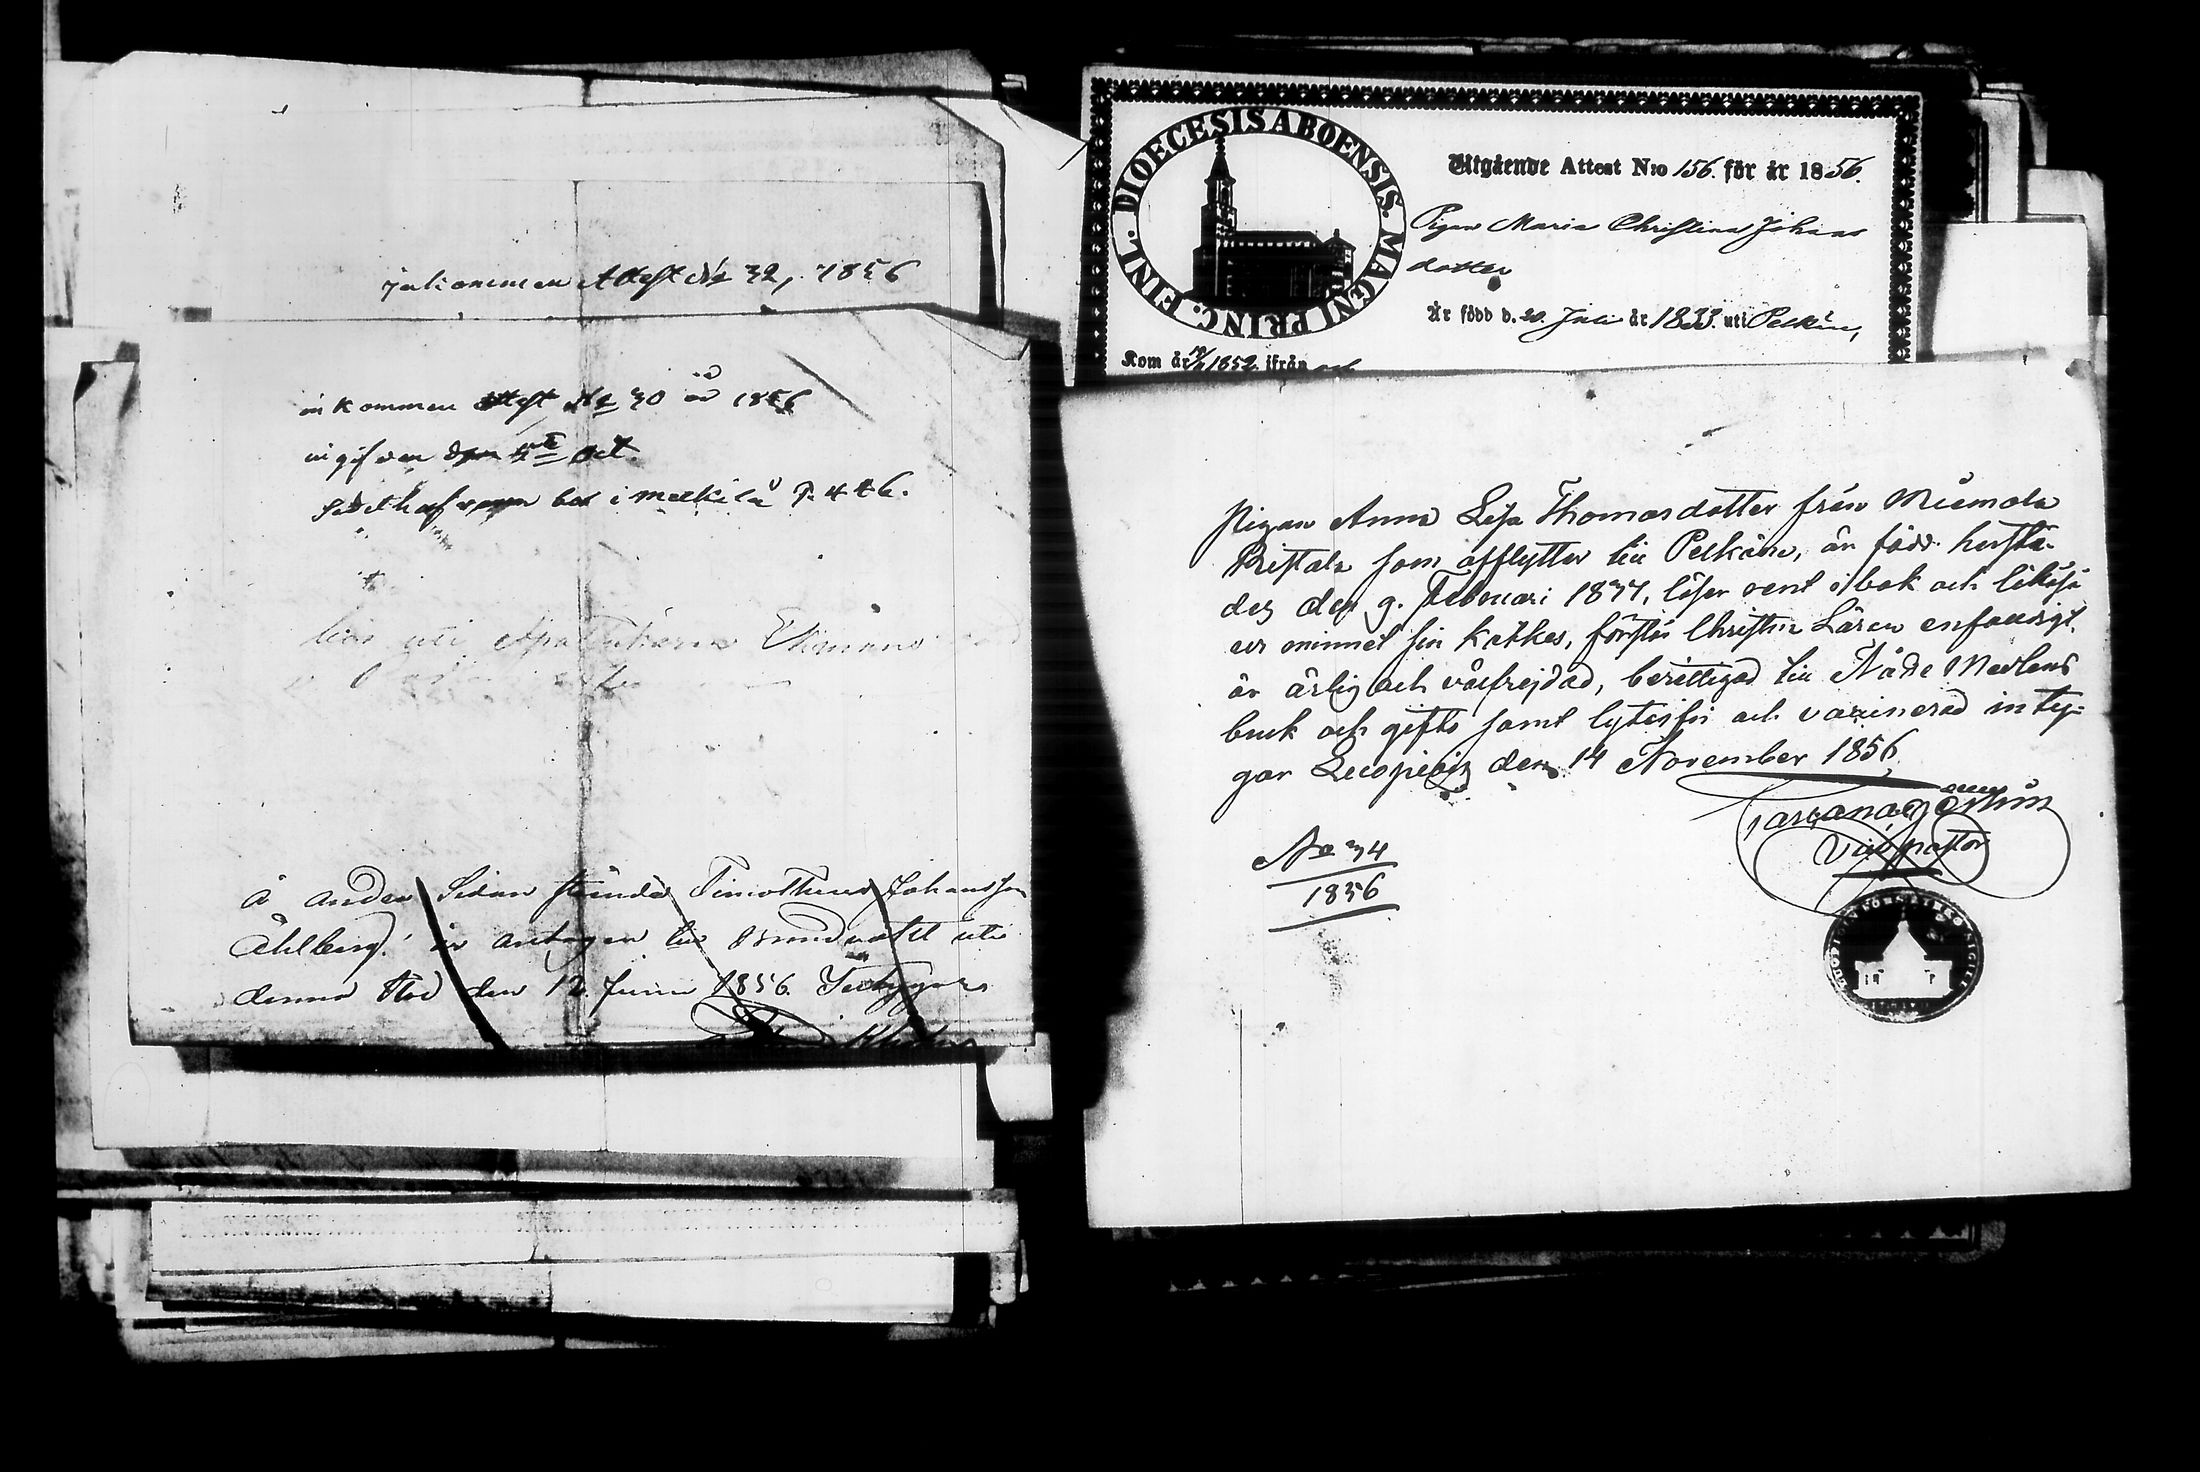 inkommen Attest No 32, 1856
inkommen Attest No 30 år 1856
ingifven den 4de Oct.
bor i Mälkilä P. 446.
bor uti Apothekare Ekmans
Å andra Sidan Timotheus Johansson
Åhlberg är antagen till Brandvakt uti
denna Stad den 12 Junii 1856. Intygar
DIOECESIS ABOENSIS. MAGNI PRINC. FINL.
Utgående Attest N:o 156. för år 1856.
Pigan Maria Christina Johans
dotter
Är född d. 20. Juli år 1833. uti Pelkäne,
Kom år 1852. ifrån
Pigan Anna Lisa Thomasdotter från
som afflyttar till Pelkäne, är född härstä-
des den 9. Februari 1837, läser rent i bok och likaså
ur minnet sin Katkes, förstår Christna Läran enfaldigt,
är ärlig och välfrejdad, berättigad till Nåde Medlens
bruk och gifte samt lytesfri och vaccinerad intyg-
gar den 14 November 1856
Vice pastor
No 34
1856